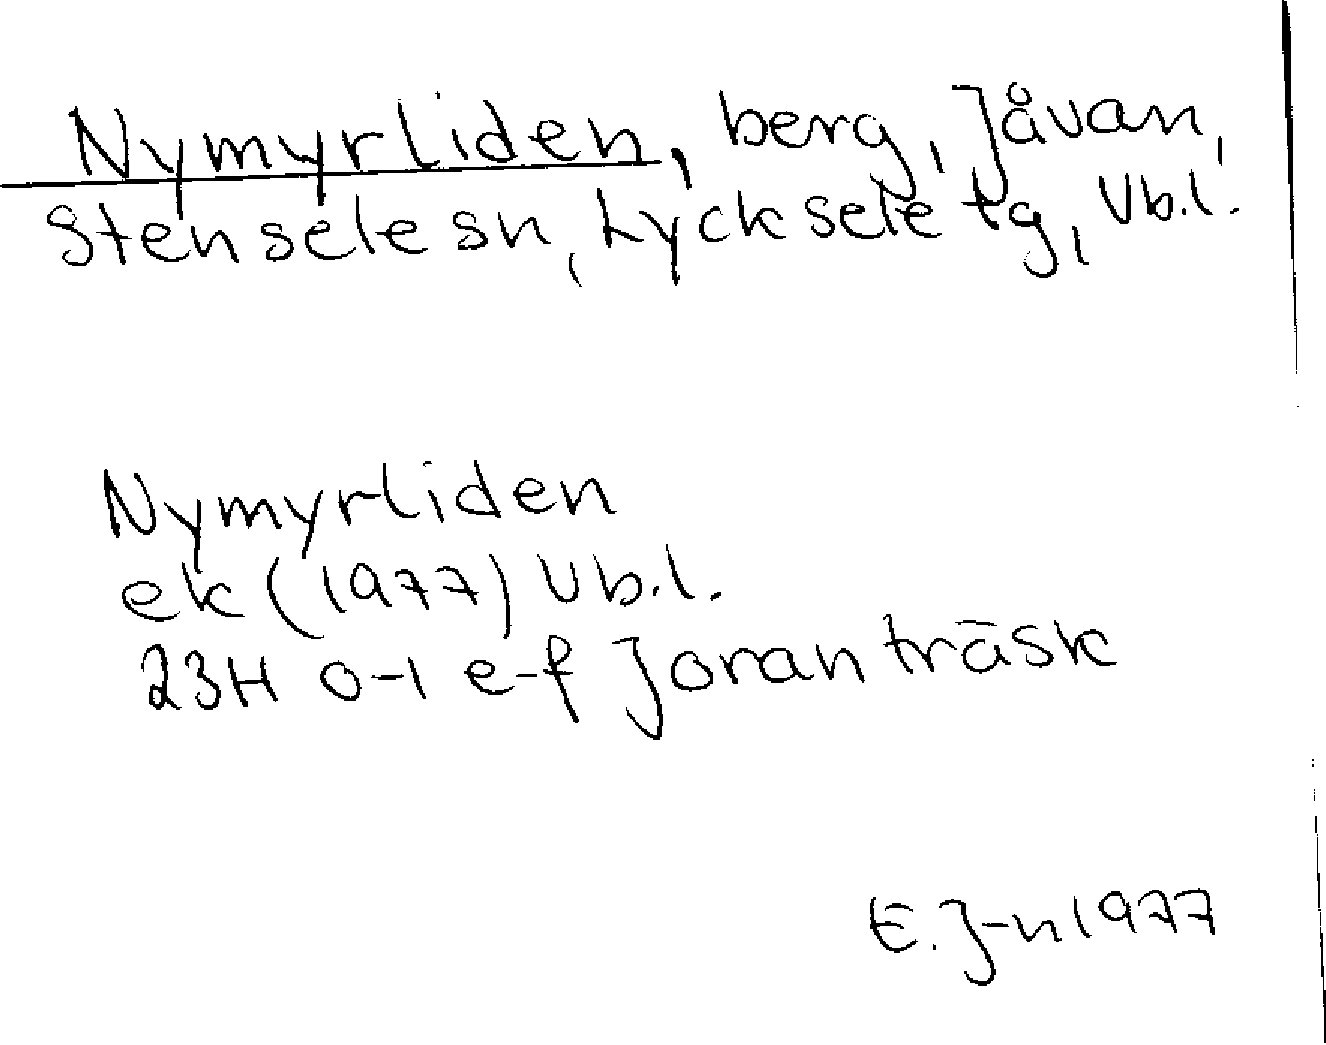 Nymyrliden, berg, Jåvan,
Stensele sn, Lycksele tg, Vb.l.
Nymyrliden
ek (1977) Vb.l.
23H 0-1 e-f Joranträsk
E.J-n 1977